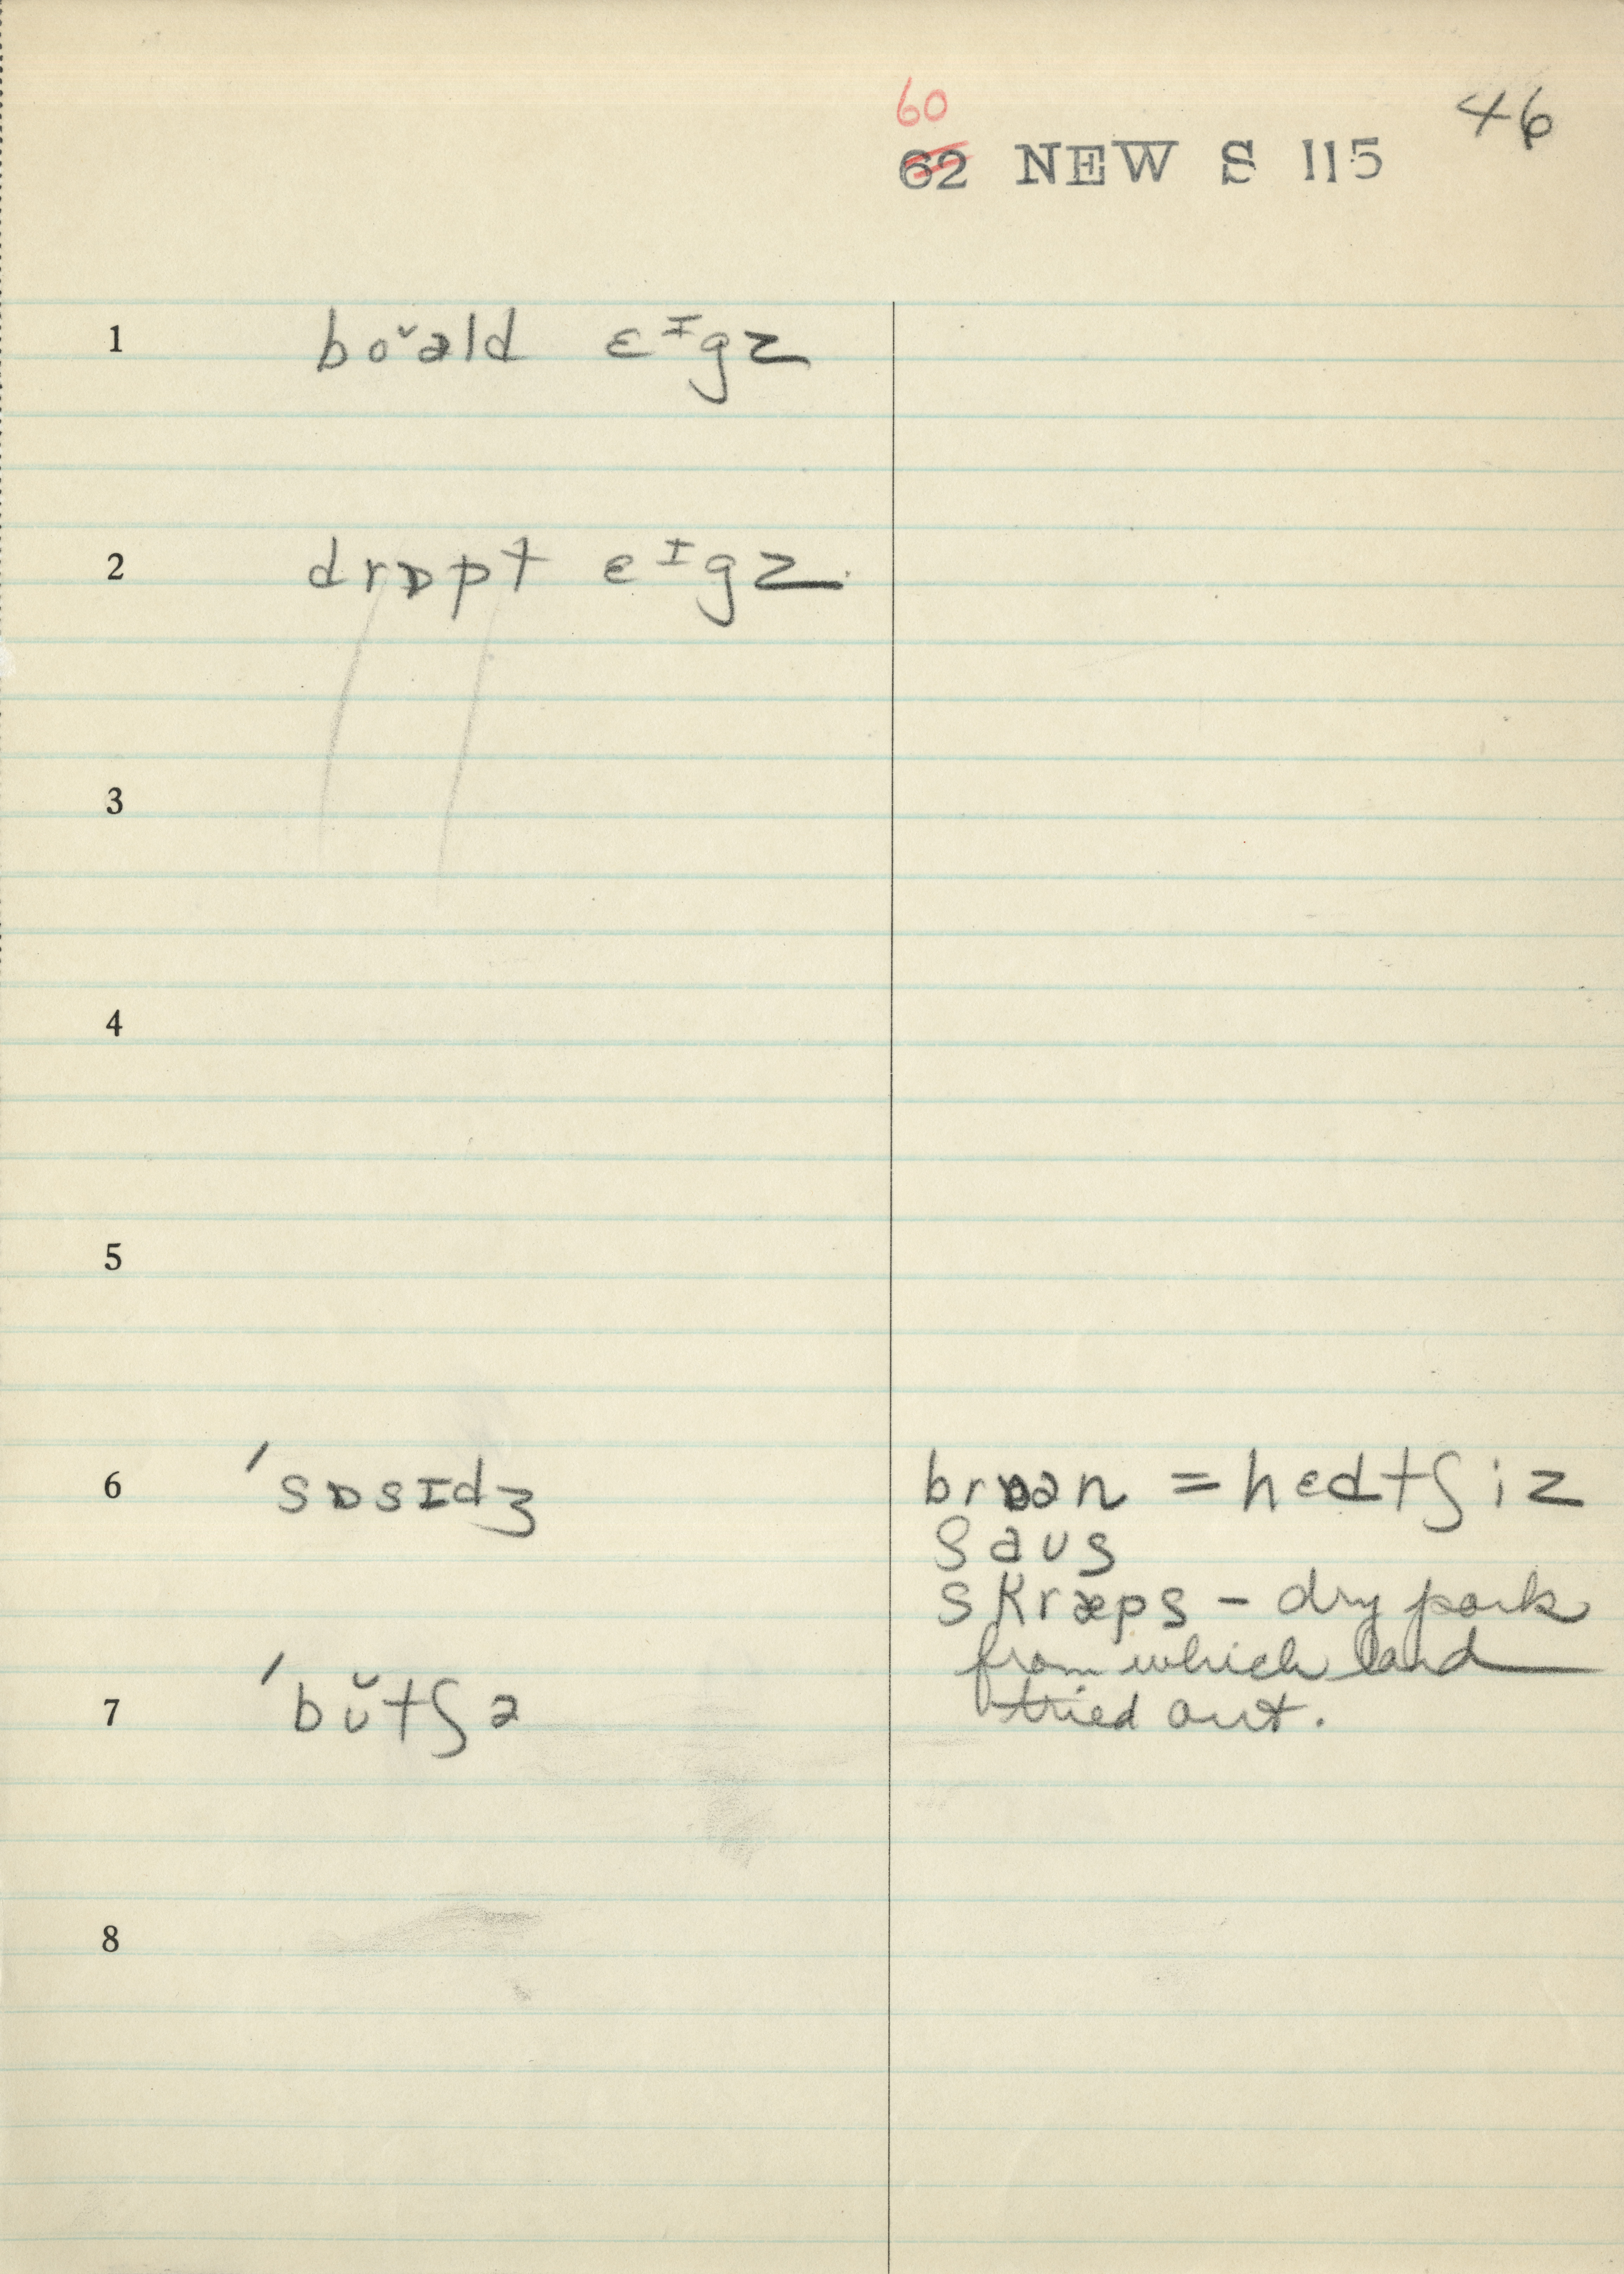 60
62 NEW S 115 46
1 bo˅əld ɛᴵgz
2 drɒpt ɛᴵgz
3
4
5
6 ˈsɒsɪdʒ brɒən = hɛdtʃiz
saus
skræps – dry pork
from which lard
7 ˈbŭtʃə tried out.
8